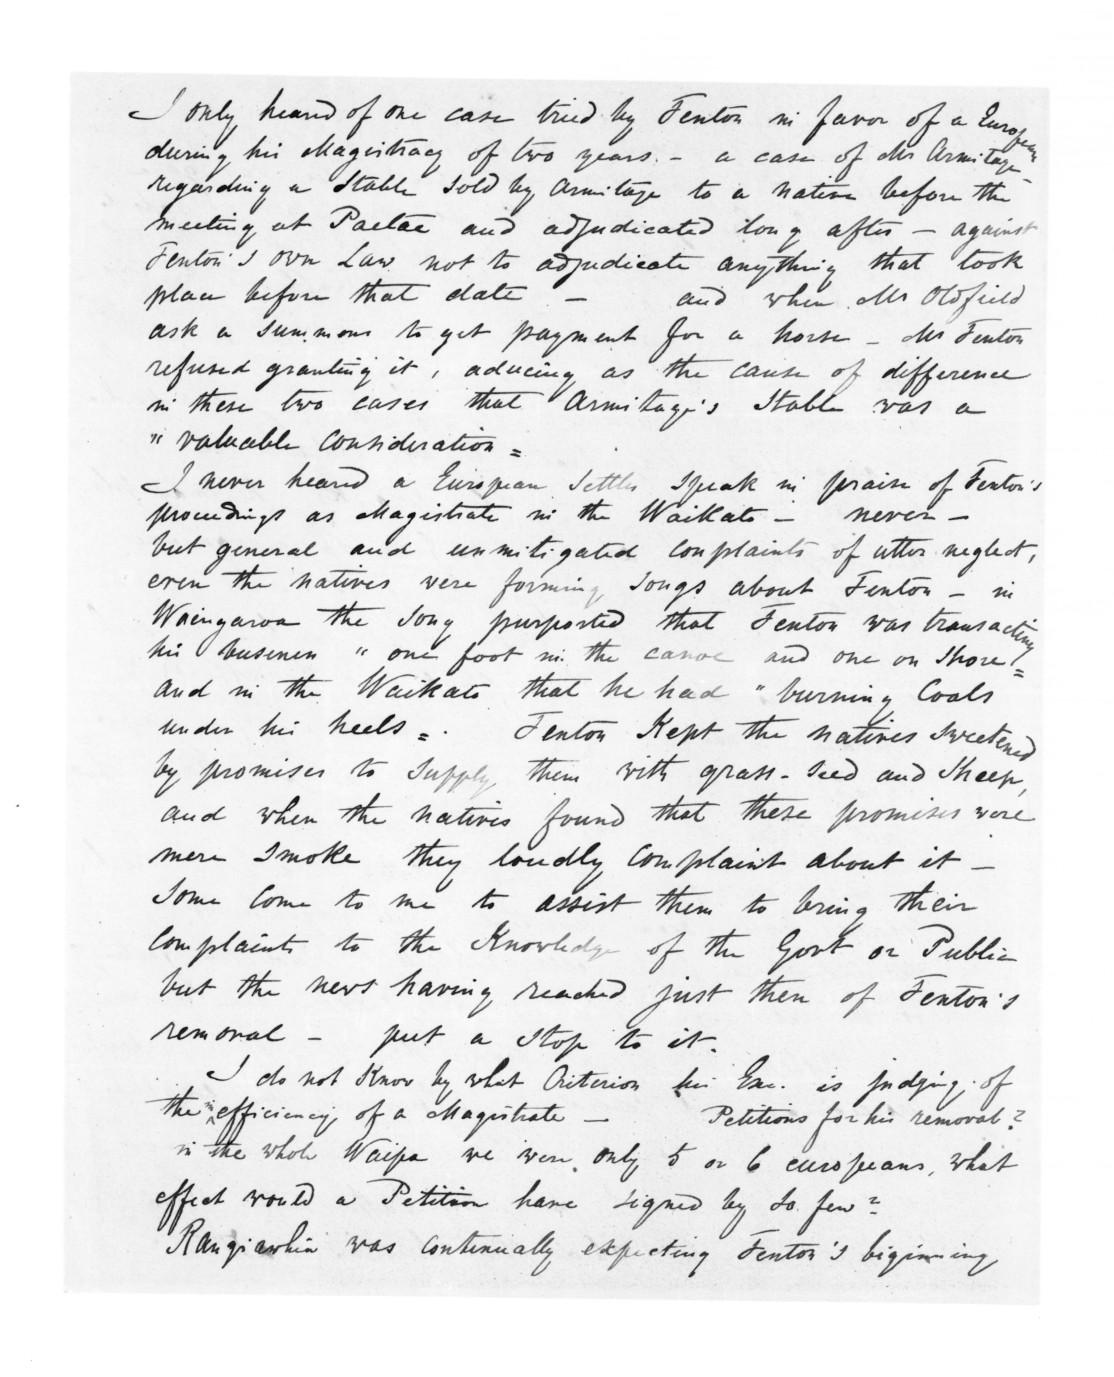 I only heard of one case tried by Fenton in favor of a European
during his Magistracy of two years. - a case of Mr Armitage
regarding a Stable sold by Armitage to a native before the
meeting at Paetae and adjudicated long after - against
Fenton's own Law not to adjudicate anything that took
place before that date - and when Mr Oldfield
ask a summons to get payment for a horse - Mr Fenton
refused granting it, aducing as the cause of difference
in these two cases that Armitage's Stable was a
" valuable consideration =
I never heard a European Settler speak in praise of Fenton's
proceedings as Magistrate in the Waikato - never -
but general and unmitigated complaints of utter neglect,
even the natives were forming songs about Fenton - in
Waingaroa the song purported that Fenton was transacting
his busenen " one foot in the canoe and one on Shore! =
and in the Waikato that he had " burning Coals
under his heels = . Fenton Kept the natives sweetened
by promises to supply them with grass-seed and Sheep,
and when the natives found that these promises were
mere smoke they loudly complaint about it -
Some come to me to assist them to bring their
complaints to the Knowledge of the Govt or Public
but the news having reached just then of Fenton's
removal - put a stop to it.
I do not Know by what Criterion his Exc. is judging of
the "efficiency of a Magistrate - Petitions for his removal?
in the whole Waipa we were only 5 or 6 europeans, what
effect would a Petition have signed by so few?
Rangiawhia was continually expecting Fenton's biginning